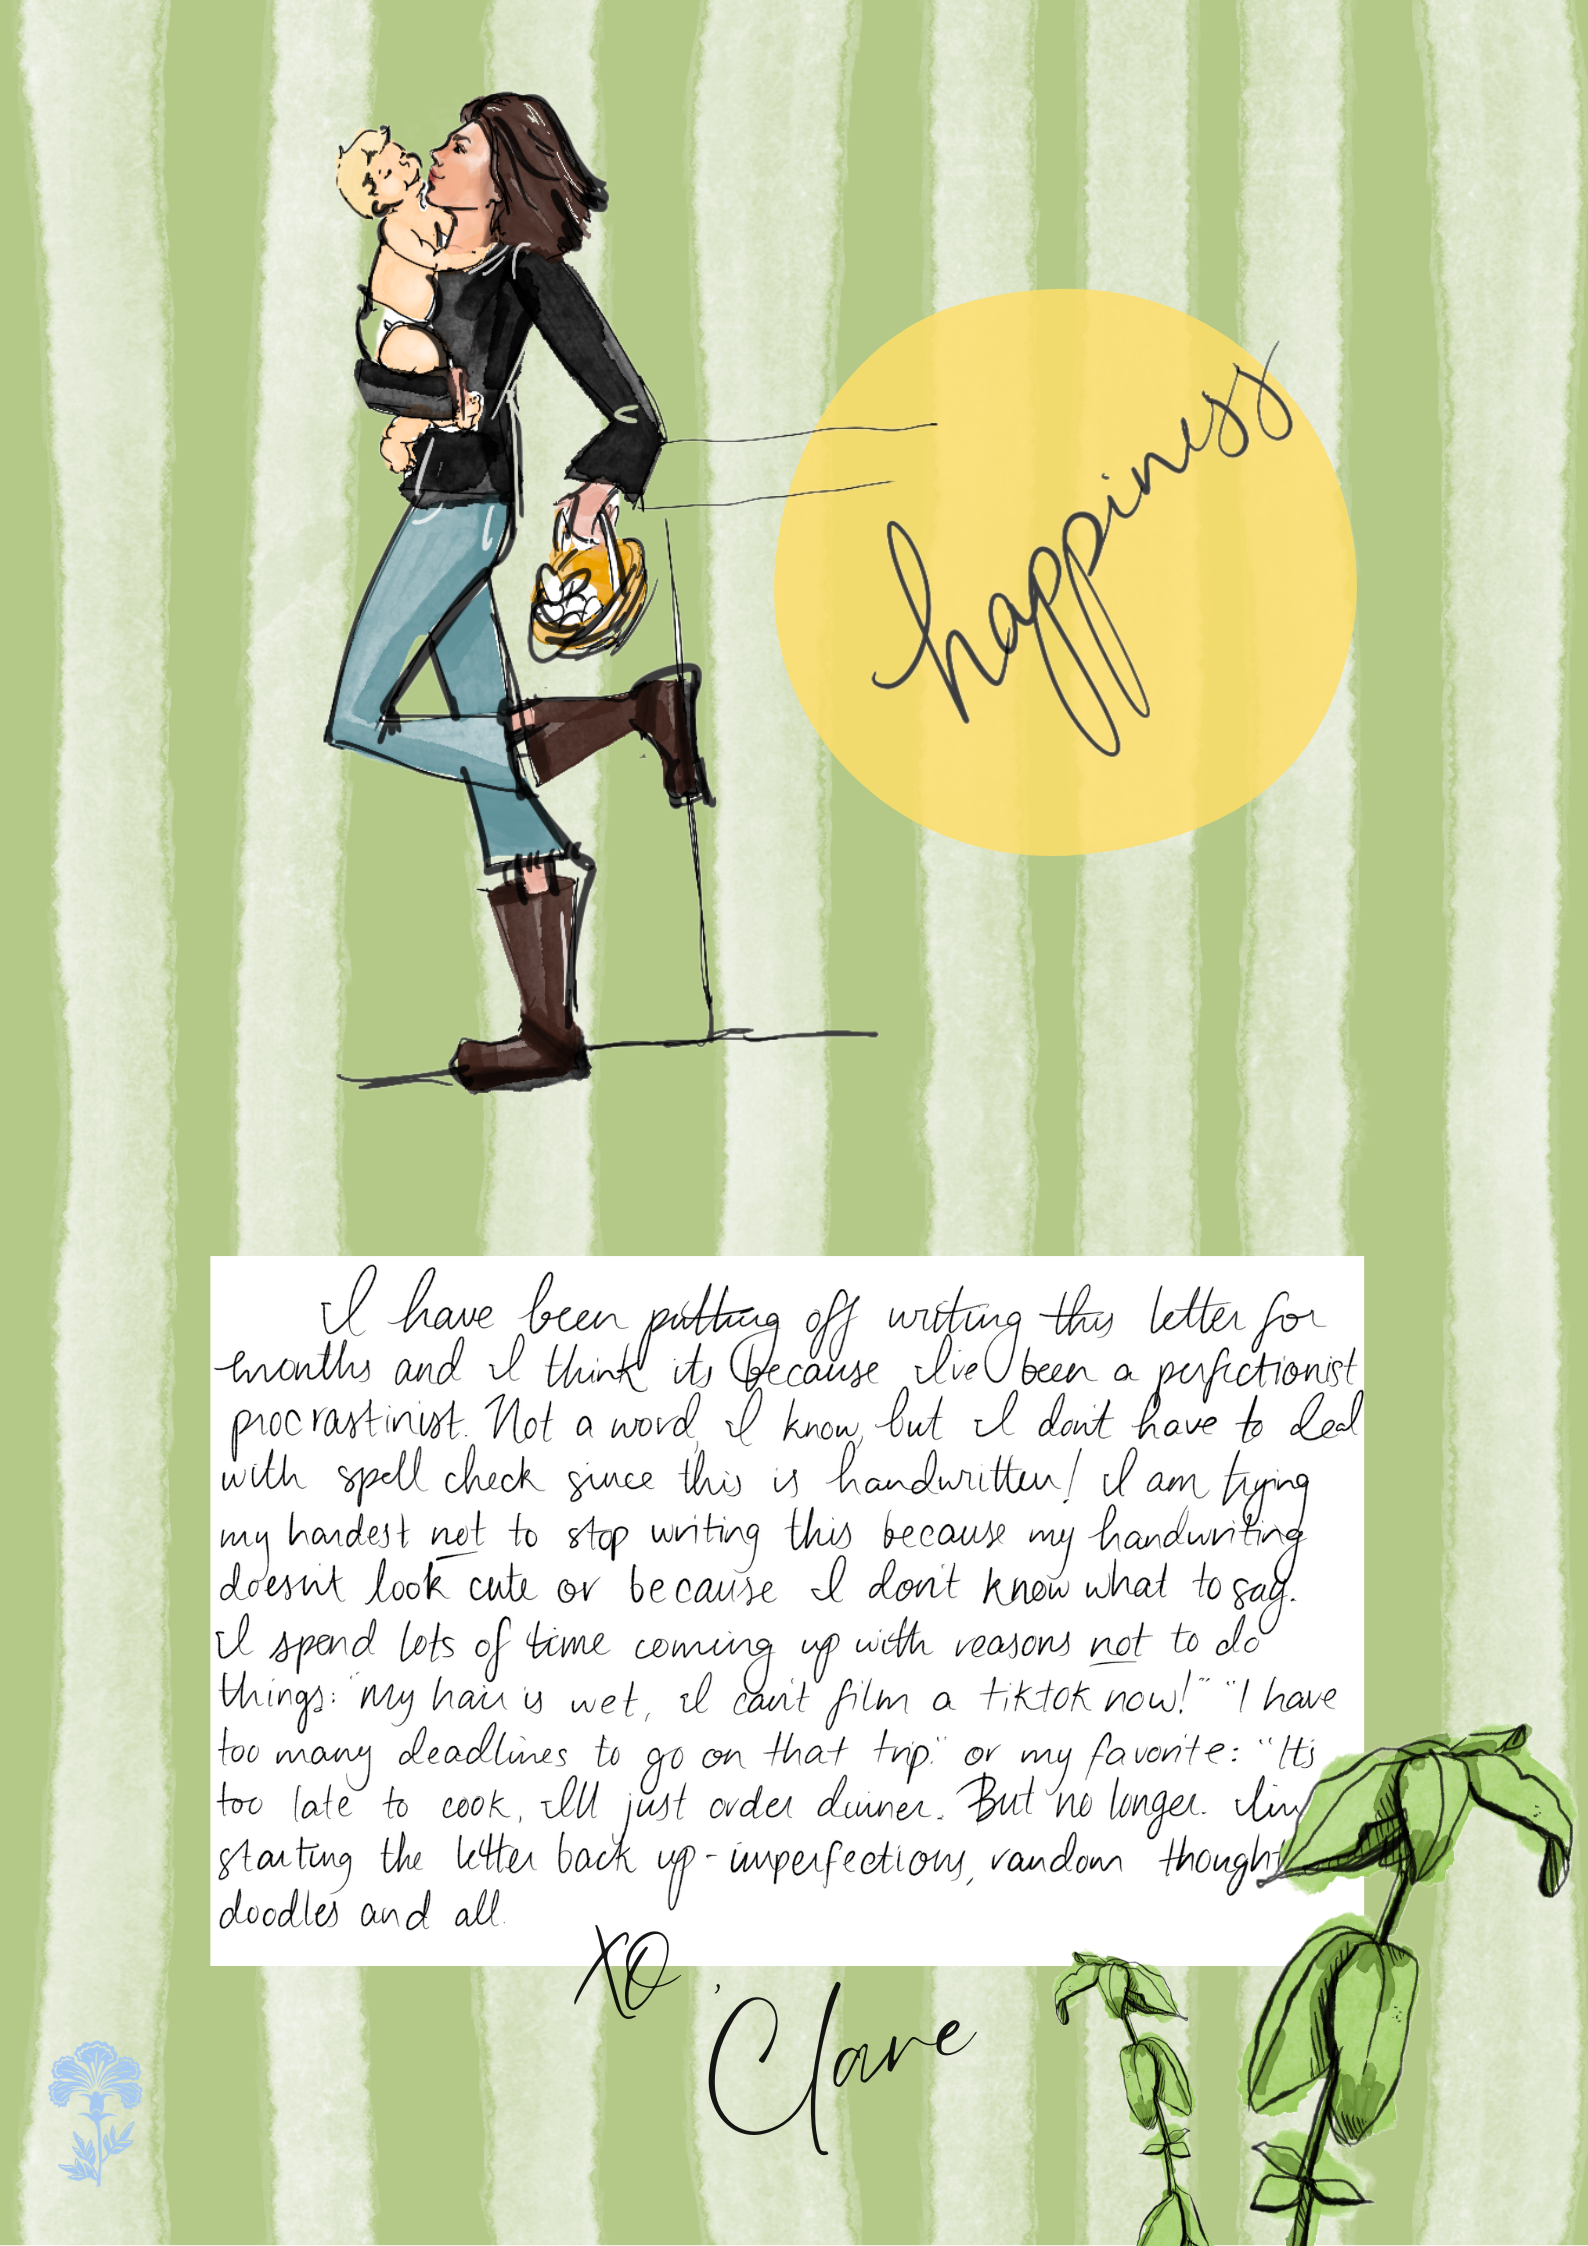 happiness
I have been putting off writing this letter for
months and I think its because I've been a perfectionist
procrastinist. Not a word, I know, but I don't have to deal
with spell check since this is handwritten! I am trying
my hardest not to stop writing this because my handwriting
doesn't look cute or because I don't know what to say.
I spend lots of time coming up with reasons not to do
things: "My hair is wet, I can't film a tiktok now!" "I have
too many deadlines to go on that trip." or my favorite: "It's
too late to cook, I'll just order dinner. But no longer. I'm
starting the letter back up - imperfections, random thought
doodles and all.
XO,
Clare